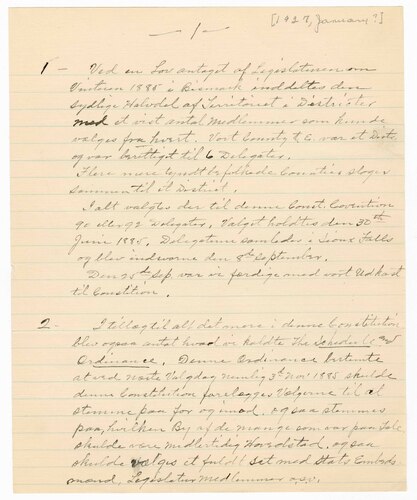 [1927, January?]
— 1 —
1 — Ved en Lov antaget af Legislaturen om
Vinteren 1885 i Bismark inddeltes den
sydlige Halvdel af Territoriet i Distrikter
med et vist antal Medlemmer som kunde
vælges fra hvert. Vort County var et Distr.
og var berettiget til 6 Delegater.
Flere mere tyndt befolkede Counties sloges
sammen til et District.
I alt valgtes der til denne Const. Convention
90 eller 92 Delegater. Valget holdtes den 30th
Juni 1885. Delegaterne samledes i Sioux Falls
og blev indsvorne den 8th September.
Den 25th Sep. var vi færdige med vort Udkast
til Constitution.
2 — I tillæg til alt det mere i denne Constitution
blev ogsaa antat hvad vi kaldte The Schedule and
Ordinance. Denne Ordinance bestemte
at ved næste Valgdag nemlig 3th Nov' 1885 skulde
denne Constitution forelægges Vælgerne til at
stemme paa for og imod, ogsaa stemmes
paa, hvilken By af de mange som var paa Tale
skulde være midlertidig Hovedstad, ogsaa
skulde vælges et fuldt set med Stats Embeds
mænd, Legislatur Medlemmer o.s.v.